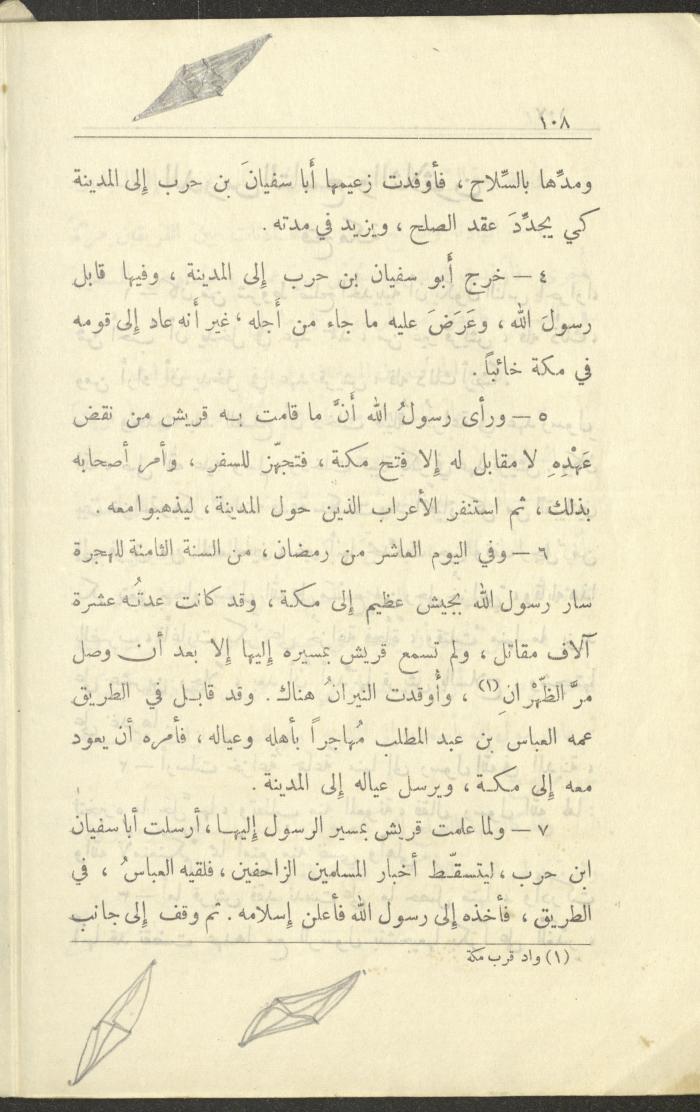 ١٠٨
ومدِّها بالسِّلاح ، فأوفدت زعيمها أَبا سفيانَ بن حرب إِلى المدينة
كي يجدِّدَ عقد الصلح ، ويزيد في مدته .
٤ — خرج أَبو سفيان بن حرب إِلى المدينة ، وفيها قابل
رسولَ الله ، وعَرَضَ عليه ما جاء من أَجله ، غير أَنه عاد إِلى قومه
في مكة خائباً .
٥ — ورأى رسولُ الله أَنَّ ما قامت به قريش من نقض
عَهْدِهِ لا مقابل له إِلا فتح مكة ، فتجهّز للسفر ، وأمر أصحابه
بذلك ، ثم استنفر الأعراب الذين حول المدينة ، ليذهبوا معه .
٦ — وفي اليوم العاشر من رمضان ، من السنة الثامنة للهجرة
سار رسول الله بجيش عظيم إِلى مكة ، وقد كانت عدتُه عشرة
آلاف مقاتل ، ولم تسمع قريش بمسيره إِليها إِلا بعد أن وصل
مرَّ الظَّهْرانِ (١) ، وأُوقدت النيرانُ هناك . وقد قابل في الطريق
عمه العباس بن عبد المطلب مُهاجراً بأهله وعياله ، فأمره أن يعود
معه إِلى مكة ، ويرسل عياله إِلى المدينة .
٧ — ولما علمت قريش بمسير الرسول إِليها ، أرسلت أبا سفيان
ابن حرب ، ليتسقّط أخبار المسلمين الزاحفين ، فلقيه العباسُ ، في
الطريق ، فأخذه إِلى رسول الله فأعلن إِسلامه . ثم وقف إِلى جانب
(١) واد قرب مكة